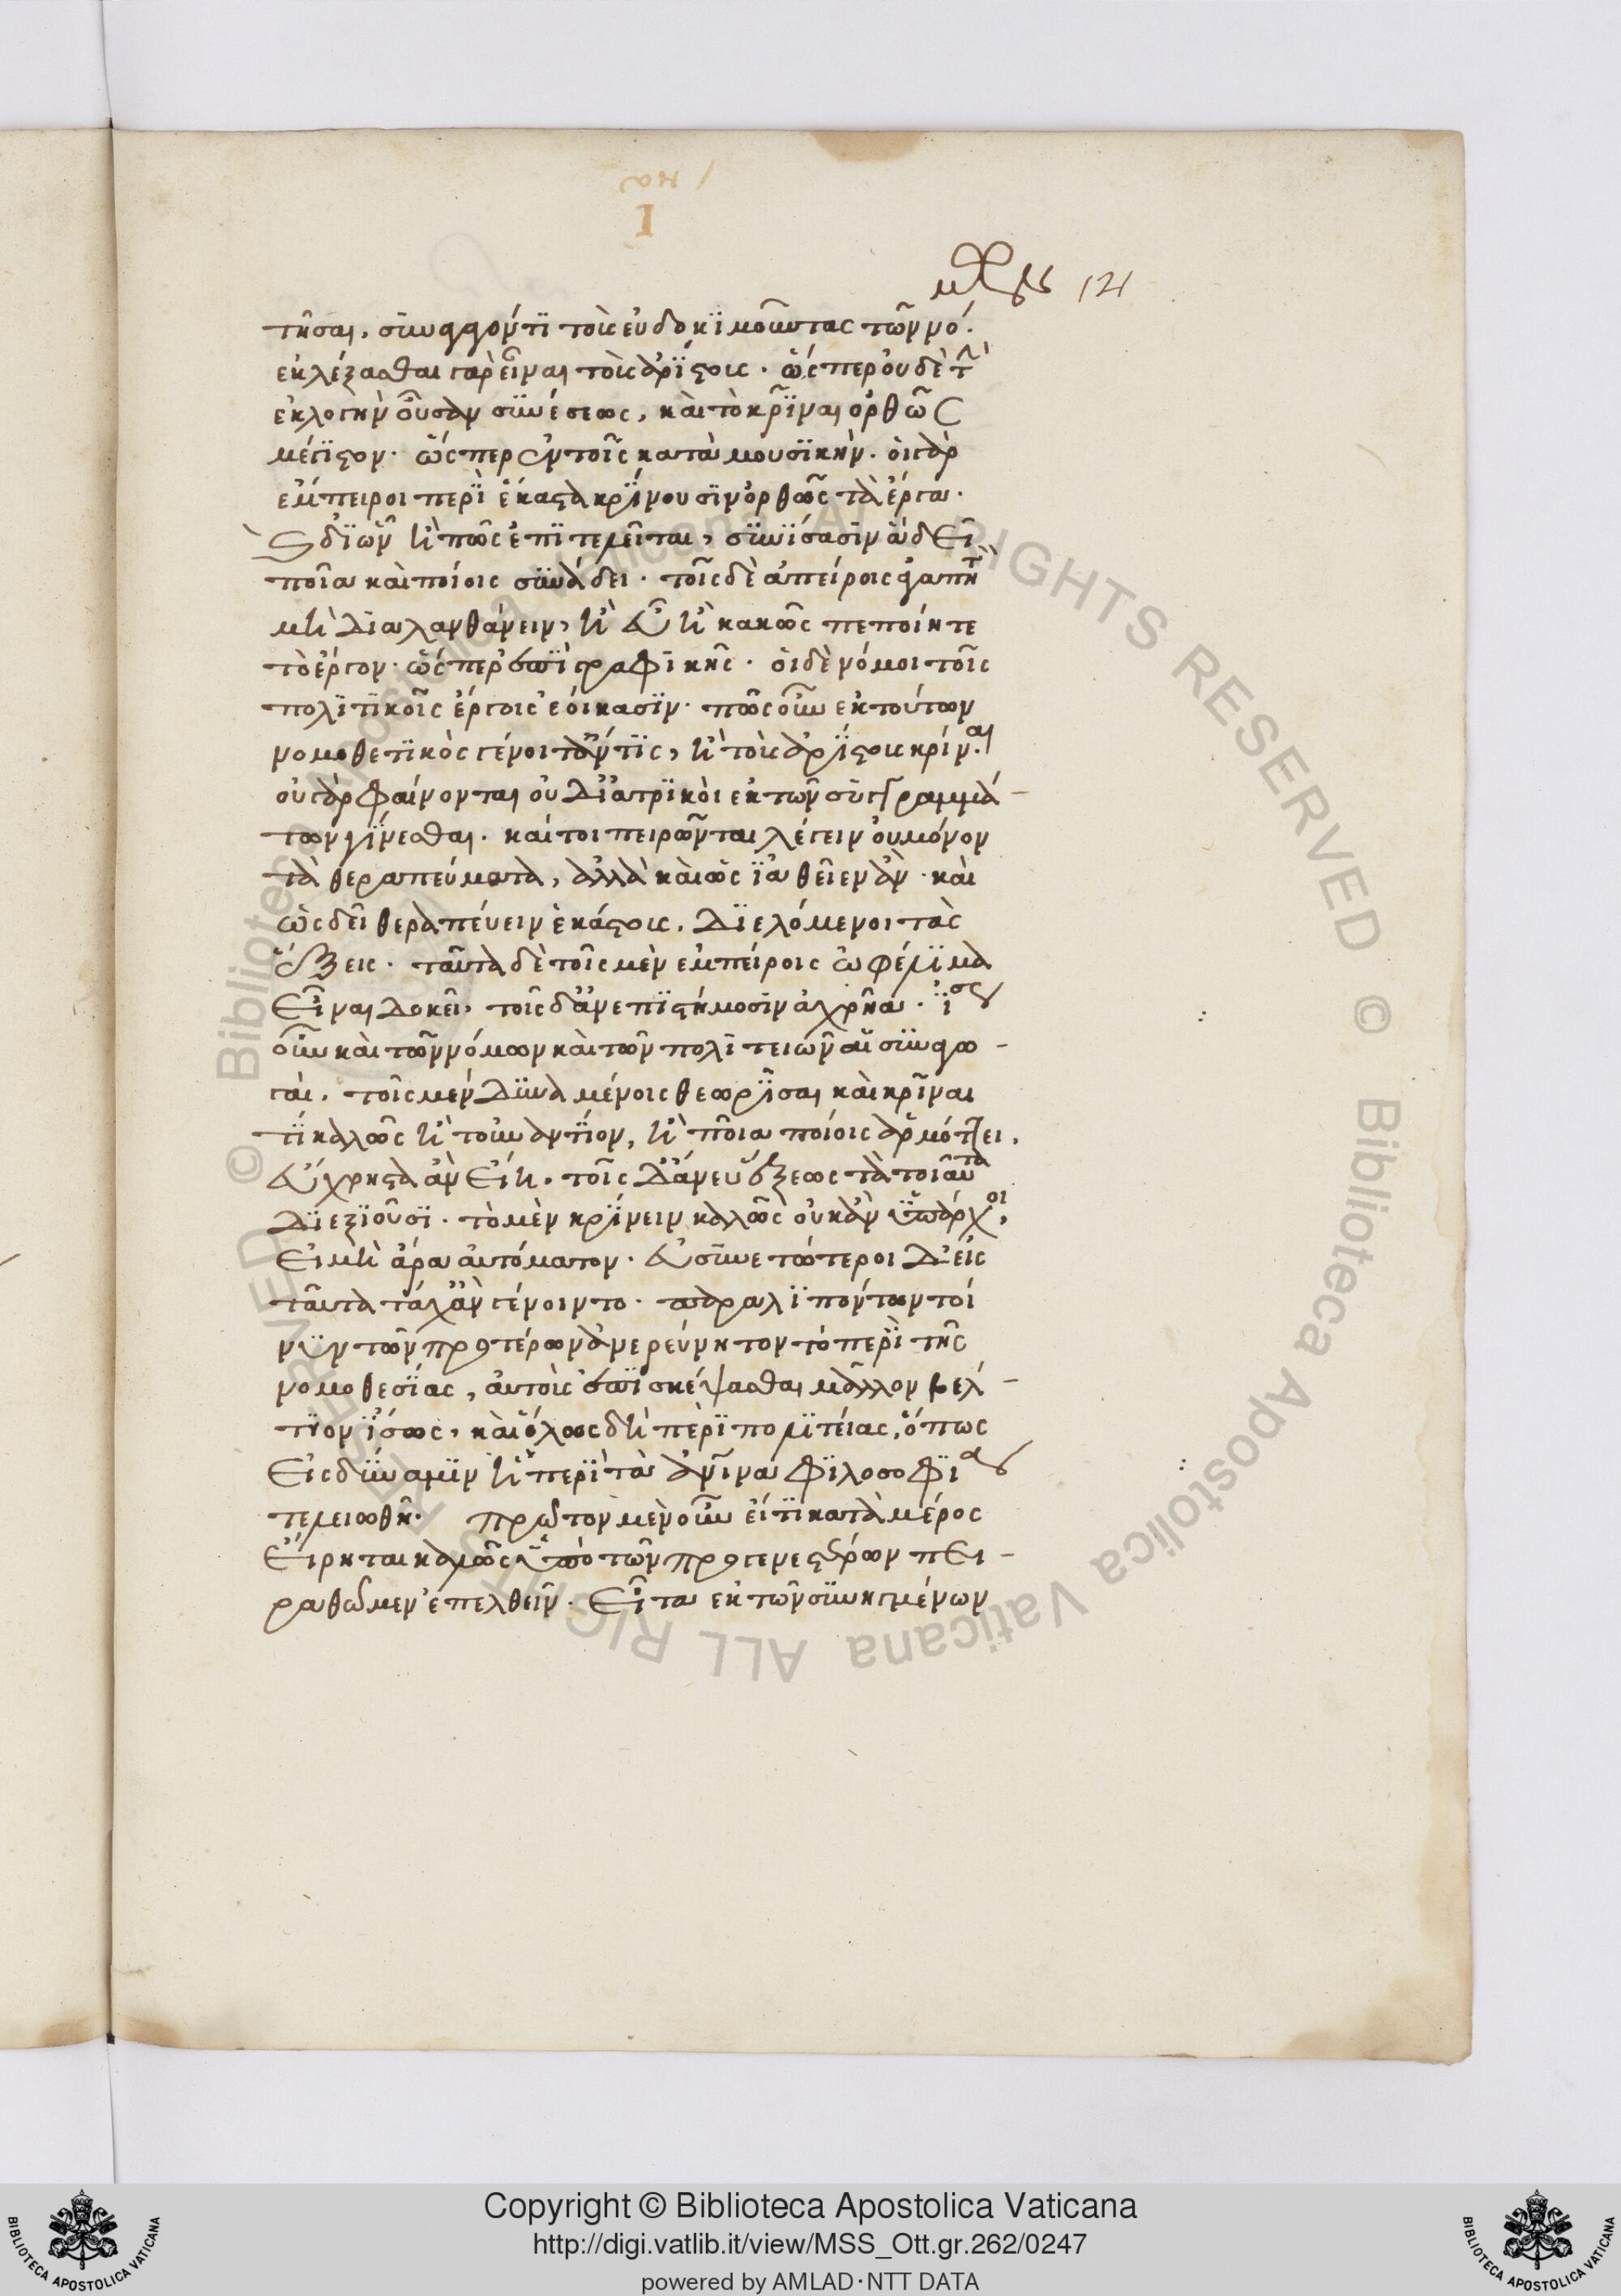 121
τῆσαι, συναγαγόντι τοὺς εὐδοκιμοῦντας τῶν νό.
ἐκλέξασθαι γὰρ εἶναι τοὺς ἀρίστους. ὥσπερ οὐδὲ τὴν
ἐκλογὴν οὖσαν συνέσεως, καὶ τὸ κρῖναι ὀρθῶς
μέγιστον. ὥσπερ ἐν τοῖς κατὰ μουσικήν. οἱ γὰρ
ἔμπειροι περὶ ἕκαστα κρίνουσιν ὀρθῶς τὰ ἔργα.
καὶ δι' ὧν ἢ πῶς ἐπιτελεῖται, συνίασιν
ποῖα καὶ ποίοις συνάδει. τοῖς δὲ ἀπείροις ἀγαπητὸν
μὴ διαλανθάνειν, εἰ εὖ ἢ κακῶς πεποίηται
τὸ ἔργον. ὥσπερ ἐπὶ γραφικῆς. οἱ δὲ νόμοι τοῖς
πολιτικοῖς ἔργοις ἐοίκασιν. πῶς οὖν ἐκ τούτων
νομοθετικὸς γένοιτ' ἄν τις, ἢ τοὺς ἀρίστους κρίναι
οὐ γὰρ φαίνονται οὐδ' ἰατρικοὶ ἐκ τῶν συγγραμμά-
των γίνεσθαι. καίτοι πειρῶνται λέγειν οὐ μόνον
τὰ θεραπεύματα, ἀλλὰ καὶ ὡς ἰαθεῖεν ἄν. καὶ
ὡς δεῖ θεραπεύειν ἑκάστους, διελόμενοι τὰς
ἕξεις. ταῦτα δὲ τοῖς μὲν ἐμπείροις ὠφέλιμα
εἶναι δοκεῖ. τοῖς δ' ἀνεπιστήμοσιν ἀχρεῖα. ἴσως
οὖν καὶ τῶν νόμων καὶ τῶν πολιτειῶν αἱ συναγω-
γαὶ. τοῖς μὲν δυναμένοις θεωρῆσαι καὶ κρῖναι
τί καλῶς ἢ τοὐναντίον, ἢ ποῖα ποίοις ἁρμόττει.
εὔχρηστα ἂν εἴη. τοῖς δ' ἄνευ ἕξεως τὰ τοιαῦτα
διεξιοῦσι. τὸ μὲν κρίνειν καλῶς οὐκ ἂν ὑπάρχοι,
εἰ μὴ ἄρα αὐτόματον. εὐσυνετώτεροι δ' εἰς
ταῦτα τάχ' ἂν γένοιντο. παραλιπόντων τοί
νυν τῶν προτέρων ἀνερεύνητον τὸ περὶ τῆς
νομοθεσίας, αὐτοὺς ἐπισκέψασθαι μᾶλλον βέλ-
τιον ἴσως, καὶ ὅλως δὴ περὶ πολιτείας, ὅπως
εἰς δύναμιν ἡ περὶ τὰ ἀνθρώπινα φιλοσοφία
τελειωθῇ. πρῶτον μὲν οὖν εἴ τι κατὰ μέρος
εἴρηται καλῶς ὑπὸ τῶν προγενεστέρων πει-
ραθῶμεν ἐπελθεῖν. εἶτα ἐκ τῶν συνηγμένων
Copyright © Biblioteca Apostolica Vaticana
http://digi.vatlib.it/view/MSS_Ott.gr.262/0247
powered by AMLAD·NTT DATA